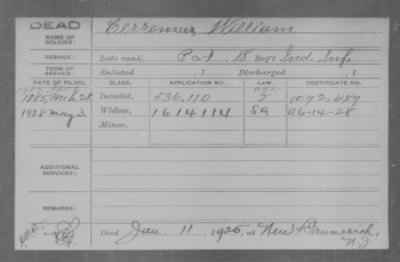 DEAD
NAME OF SOLDIER: Cerrennes William
SERVICE: Late rank, Pvt, 18 Reg't Ind. Inf.
TERM OF SERVICE: Enlisted , 1 Discharged , 1
DATE OF FILING. CLASS. APPLICATION NO. LAW. CERTIFICATE NO.
1885 Mch. 28 Invalid, 536,110 J 1092489
1928 May 3 Widow, 1614114 SA A6-14-28
Minor,
ADDITIONAL SERVICES:
REMARKS:
Died Jan. 11, 1925, at New Brunswick, N.J.